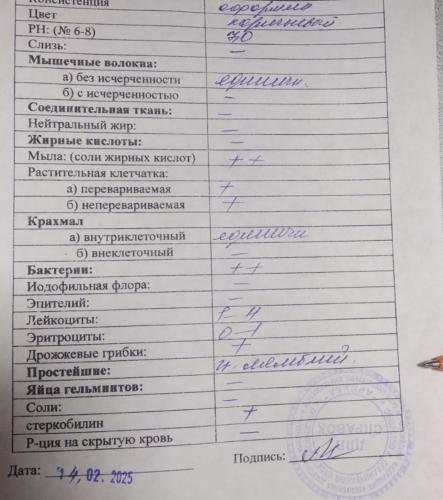 Консистенция оформлена
Цвет коричневый
РН: (№ 6-8) 7,0
Слизь: —
Мышечные волокна:
а) без исчерченности единичн.
б) с исчерченностью —
Соединительная ткань: —
Нейтральный жир: —
Жирные кислоты: —
Мыла: (соли жирных кислот) ++
Растительная клетчатка:
а) перевариваемая +
б) неперевариваемая +
Крахмал
а) внутриклеточный единичн
б) внеклеточный —
Бактерии: ++
Иодофильная флора: —
Эпителий: —
Лейкоциты: – 4
Эритроциты: 0–1
Дрожжевые грибки: +
Простейшие: ц. лямблий.
Яйца гельминтов: —
Соли: —
стеркобилин +
Р-ция на скрытую кровь —
Дата: 14.02.2025 Подпись:
ДЛЯ
СПРАВОК